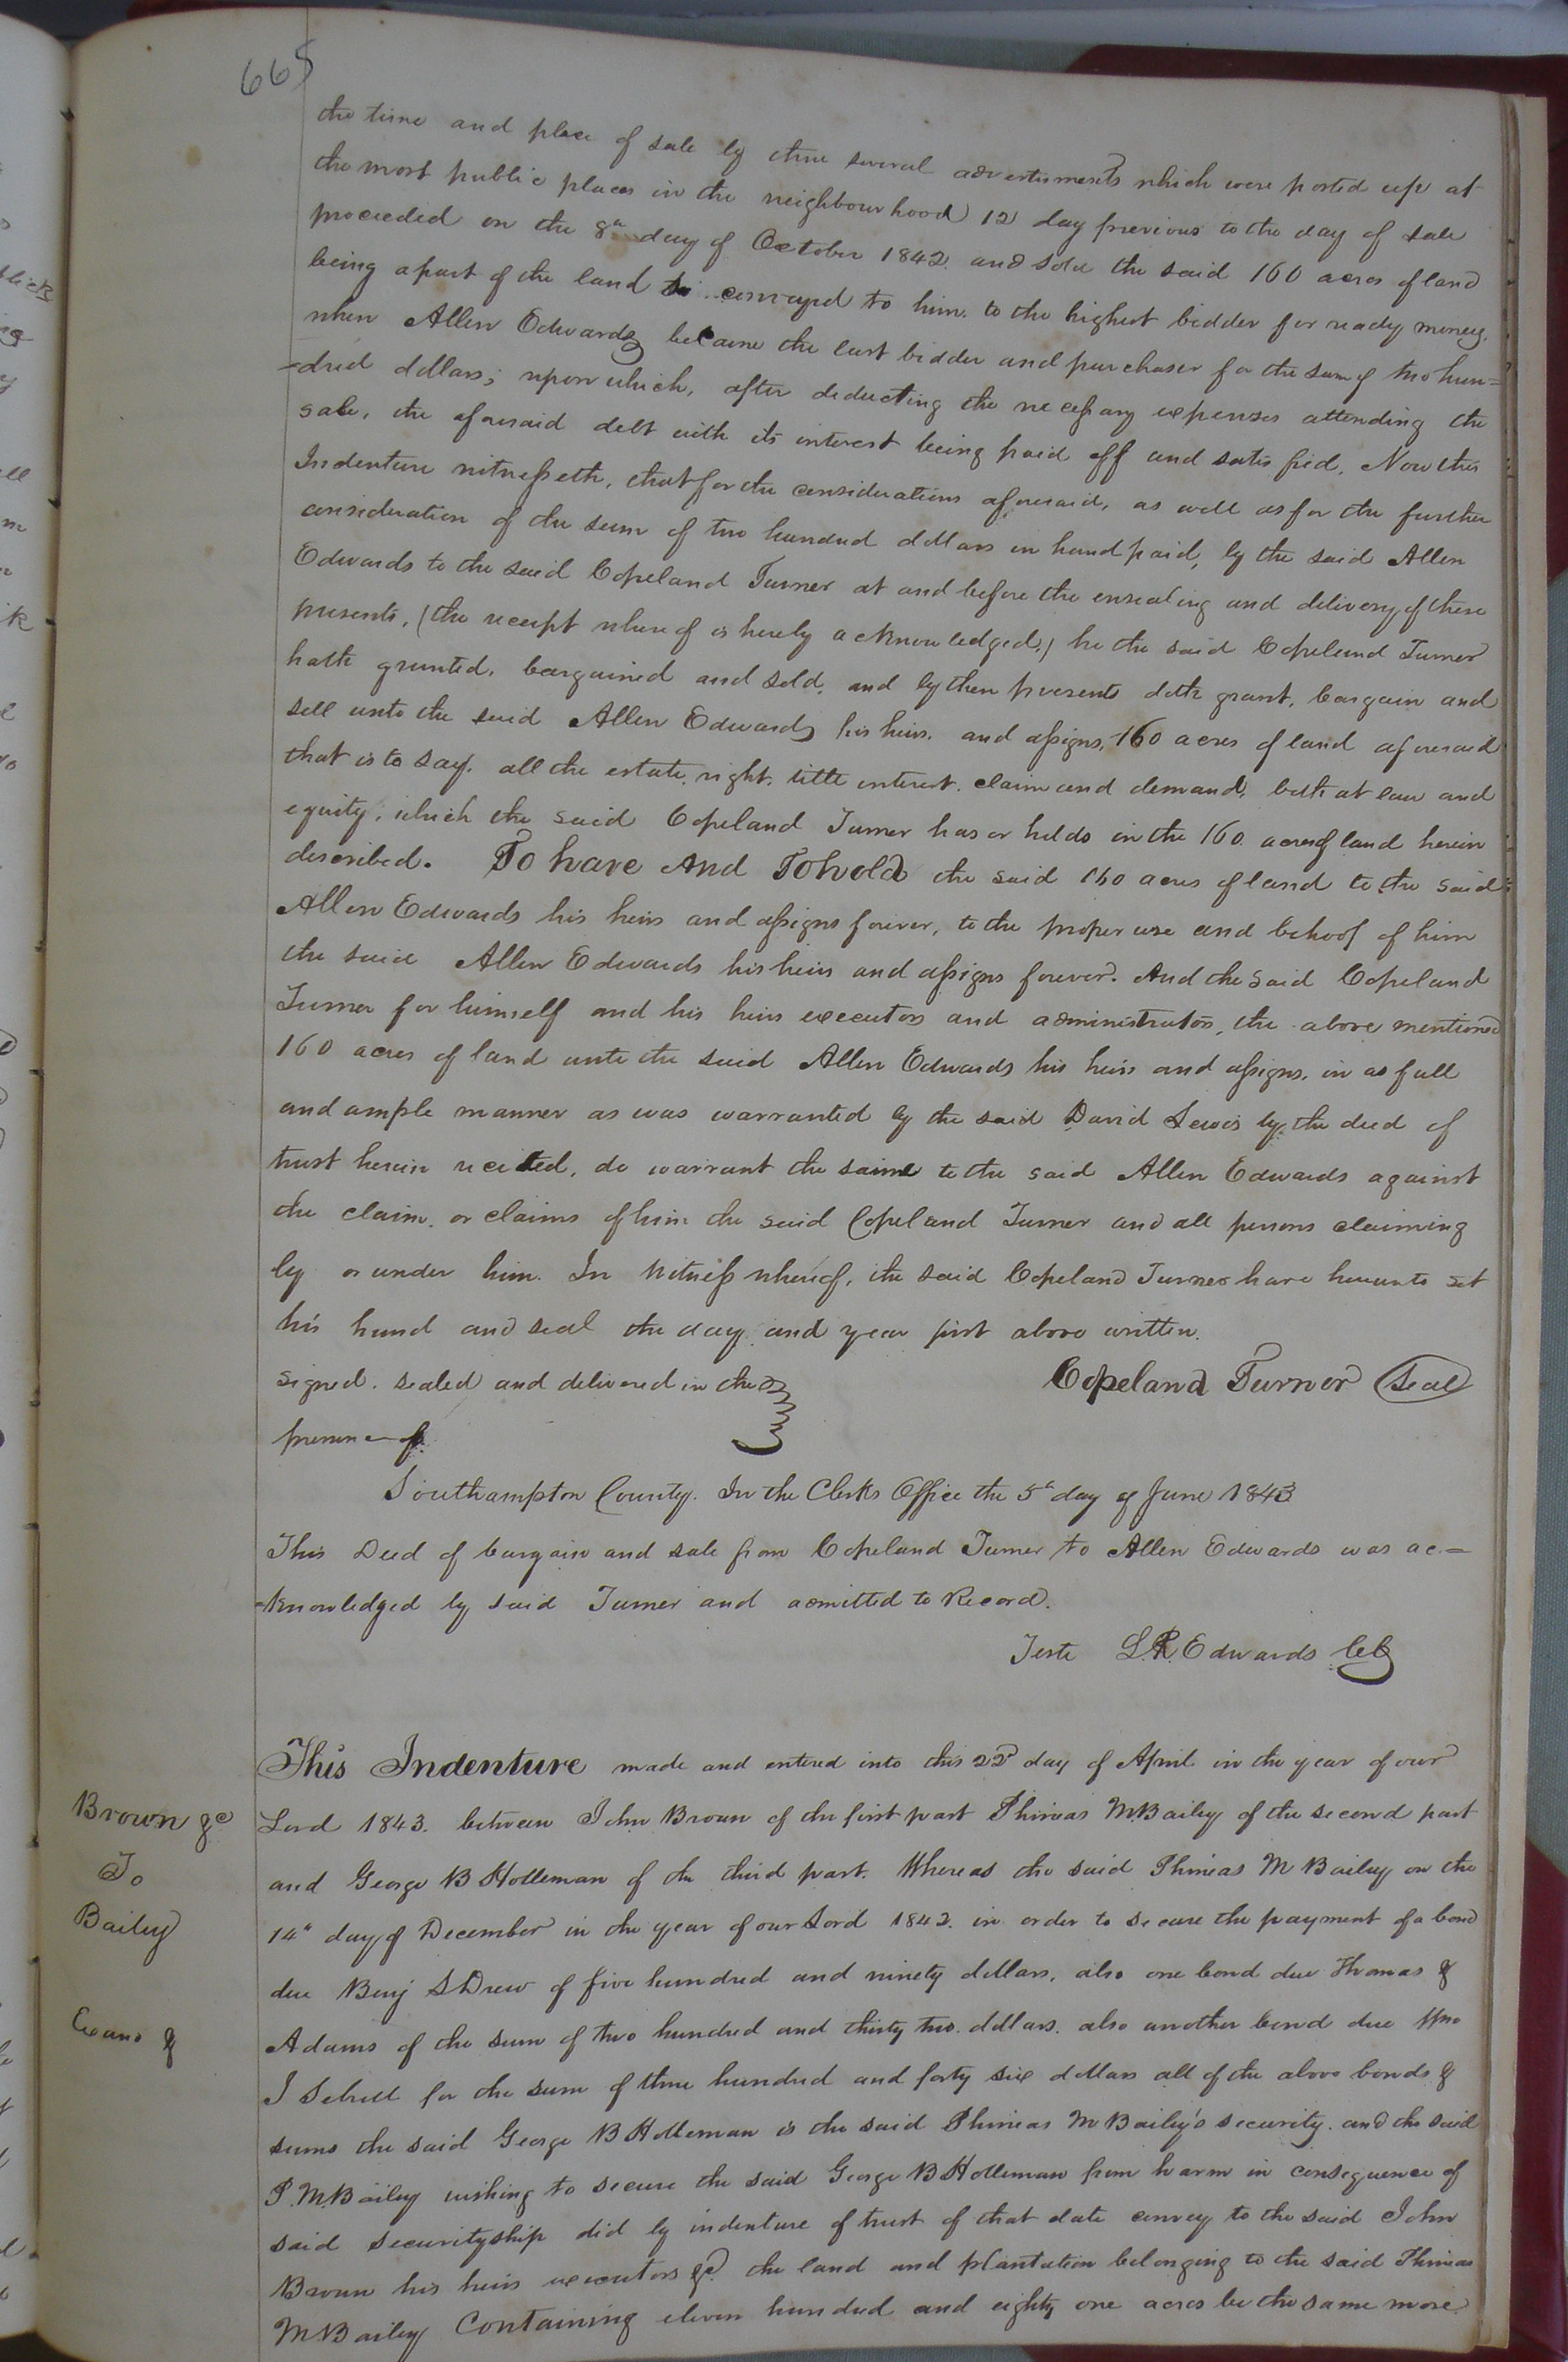 665
the time and place of sale by three several advertisments which were posted up at
the most public places in the neighbourhood 12 day previous to the day of sale
proceeded on the 8th day of October 1842. and sold the said 160 acres of land
being apart of the land so conveyed to him. to the highest bidder for ready money.
when Allen Edwards became the last bidder and purchaser for the sum of two hun=
=dred dollars; upon which, after deducting the necessary expenses attending the
sale, the aforesaid debt with its interest being paid off and satisfied. Now this
Indenture witnesseth, that for the considerations aforesaid, as well as for the further
consideration of the sum of two hundred dollars in hand paid, by the said Allen
Edwards to the said Copeland Turner at and before the ensealing and delivery of these
presents, (the receipt whereof is hereby acknowledged,) he the said Copeland Turner
hath granted, bargained and sold, and by these presents doth grant, bargain and
sell unto the said Allen Edwards his heirs. and assigns, 160 acres of land aforesaid
that is to say. all the estate, right, title interest. claim and demand, both at law and
equity, which the said Copeland Turner has or holds in the 160. acres of land herein
described. To have And To hold the said 160 acres of land to the said
Allen Edwards his heirs and assigns forever, to the proper use and behoof of him
the said Allen Edwards his heirs and assigns forever. And the said Copeland
Turner for himself and his heirs executors and administrators, the above mentioned
160 acres of land unto the said Allen Edwards his heirs and assigns, in as full
and ample manner as was warranted by the said David Lewis by the deed of
trust herein recited, do warrant the same to the said Allen Edwards against
the claim. or claims of him the said Copeland Turner and all persons claiming
by or under him. In witness whereof, the said Copeland Turner have hereunto set
his hand and seal the day and year first above written.
signed. sealed and delivered in the
presence of
Copeland Turner Seal
Southampton County. In the Clerks Office the 5th day of June 1843
This Deed of bargain and sale from Copeland Turner to Allen Edwards was ac=
=knowledged by said Turner and admitted to Record.
Teste L.R. Edwards
This Indenture made and entered into this 22d day of April in the year of our
Brown &c
To
Bailey
Lord 1843. between John Brown of the first part Phineas M. Bailey of the second part
and George B Holleman of the third part. Whereas the said Phineas M Bailey on the
14th day of December in the year of our Lord 1842. in order to secure the payment of a bond
due Benj S Drew of five hundred and ninety dollars, also one bond due Thomas &
Adams of the sum of two hundred and thirty two. dollars. also another bond due
I Sebrell for the sum of three hundred and forty six dollars all of the above bonds &
sums the said George B Holleman is the said Phineas M Bailey's security. and the said
P. M. Bailey wishing to secure the said George B Holleman from harm in consequence of
said securityship did by indenture of trust of that date convey to the said John
Brown his heirs executors &c the land and plantation belonging to the said Phineas
M. Bailey Containing eleven hundred and eighty one acres be the same more